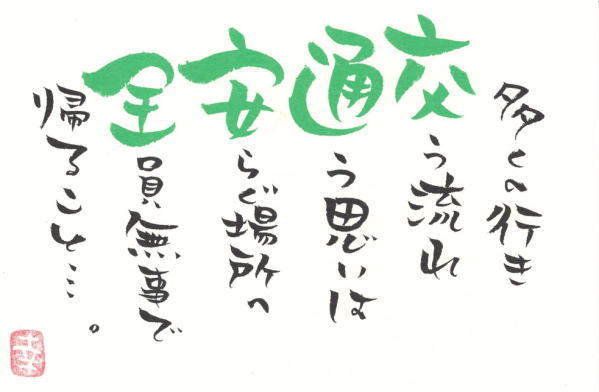 多くの行き
交う流れ
通う思いは
安らぐ場所へ
全員無事で
帰ること…。
幸